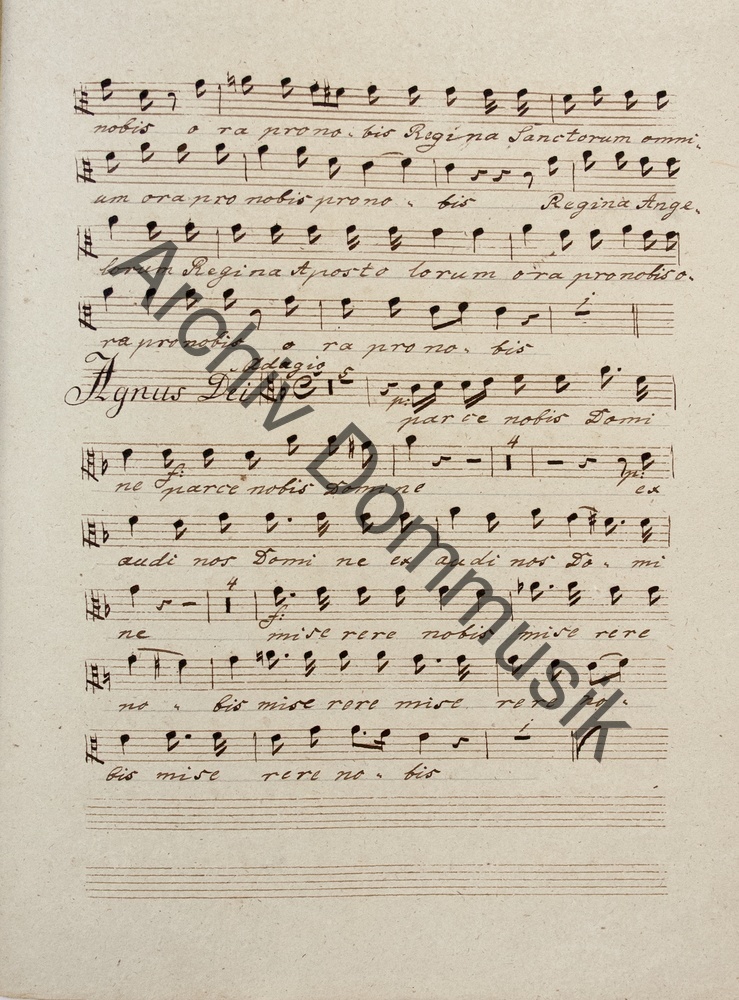 nobis o ra prono - bis Regina Sanctorum omni-
um ora pro nobis prono - bis Regina Ange-
lorum Regina Aposto lorum o ra pro nobis o-
ra pro nobis o ra pro no - bis
1
Agnus Dei Adagio 5
p: parce nobis Domi
4
ne f: parce nobis Domine p: ex
audi nos Domi ne ex audi nos Do - mi
4
ne f: mise rere nobis mise rere
no - bis mise rere mise rere no -
1
bis mise rere no - bis
Archiv Dommusik